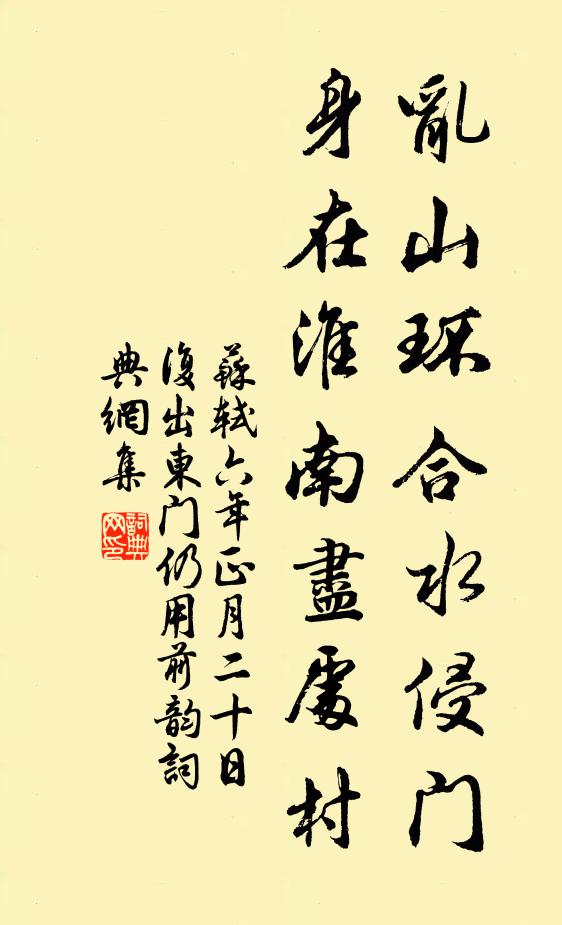 亂山環合水侵门
身在淮南盡處村
蘇軾六年正月二十日
復出東门仍用前韵詞
典網集
詞典
网印